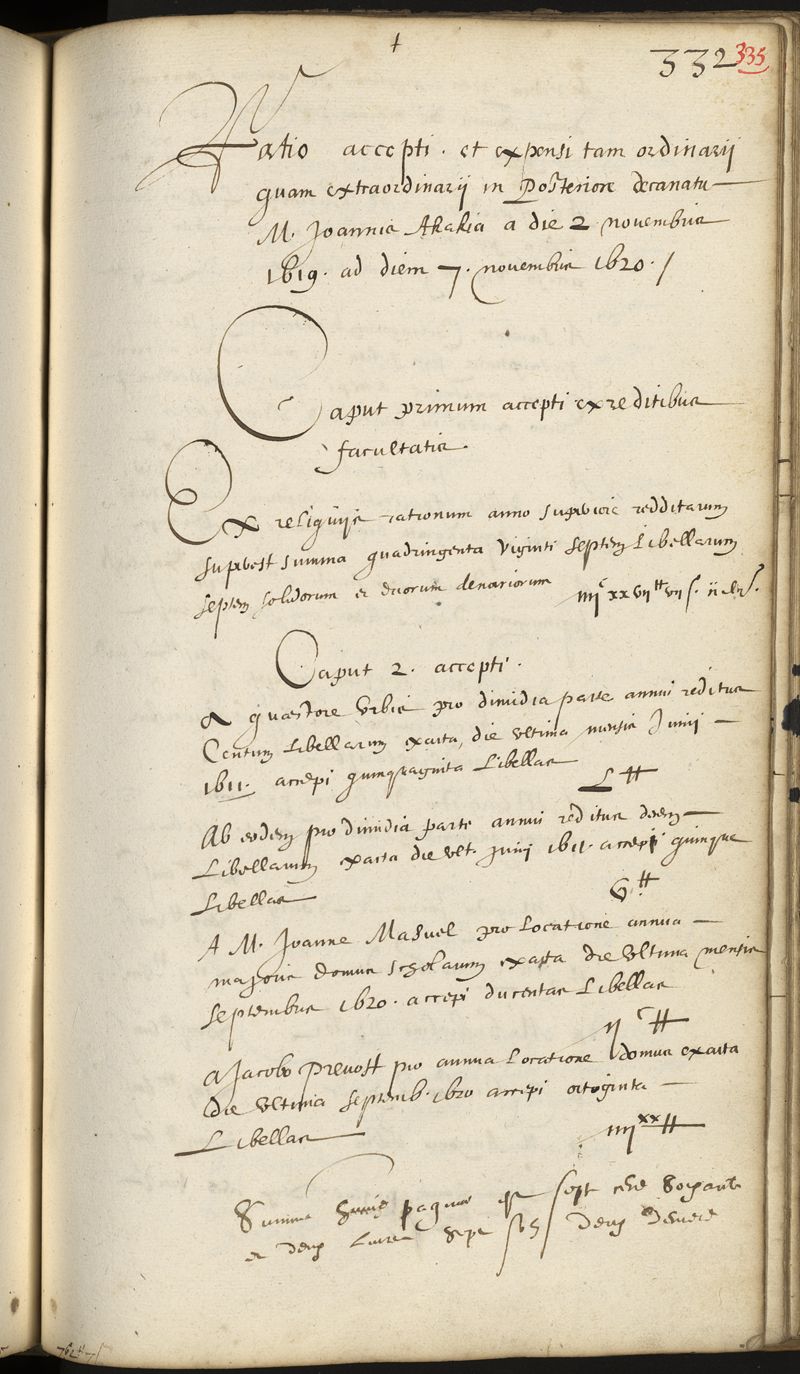 +
332 335
Ratio accepti. et expensi tam ordinarij
quam extraordinarij in Posteriore decanatu
M. Joannis Akakia a die 2 novembris
1619. ad diem 7. novembris 1620. /
Caput primum accepti ex reditibus
facultatis.
Ex reliquijs rationum anno superiore redditarum
superest summa quadringenta viginti septem Libellarum
septem solidorum et duorum denariorum iiiic xxvii tt vii s. ii d.
Caput 2. accepti.
A quaestore Urbis pro dimidia parte annui reditus
Centum Libellarum exacta, die ultima mensis Junij
1611. accepi quinquaginta Libellas
L tt
Ab eodem pro dimidia parte annui reditus decem
Libellarum exacta die ult. junij 1611. accepi quinque
Libellas
V tt
A M. Joanne Masuel pro Locatione annua
majoris domus scholarum exacta die ultima mensis
Septembris 1620. accepi ducentas Libellas
ii c tt
A Jacobo Prevost pro annua Locatione domus exacta
die ultima septemb. 1620 accepi octoginta
Libellas
iiii xx tt
Summa huius paginae est sept cens soixante
et deux Livres sept sols deux deniers
762 tt 7 s